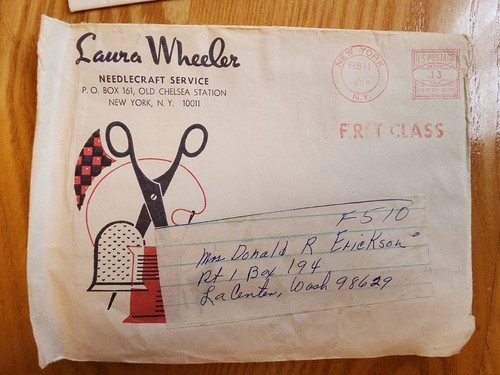 Laura Wheeler
NEEDLECRAFT SERVICE
P. O. BOX 161, OLD CHELSEA STATION
NEW YORK, N. Y. 10011
NEW YORK
FEB 11
N.Y.
U.S. POSTAGE
.13
FIRST CLASS
F510
Mrs Donald R Erickson
Rt 1 Box 194
La Center, Wash 98629